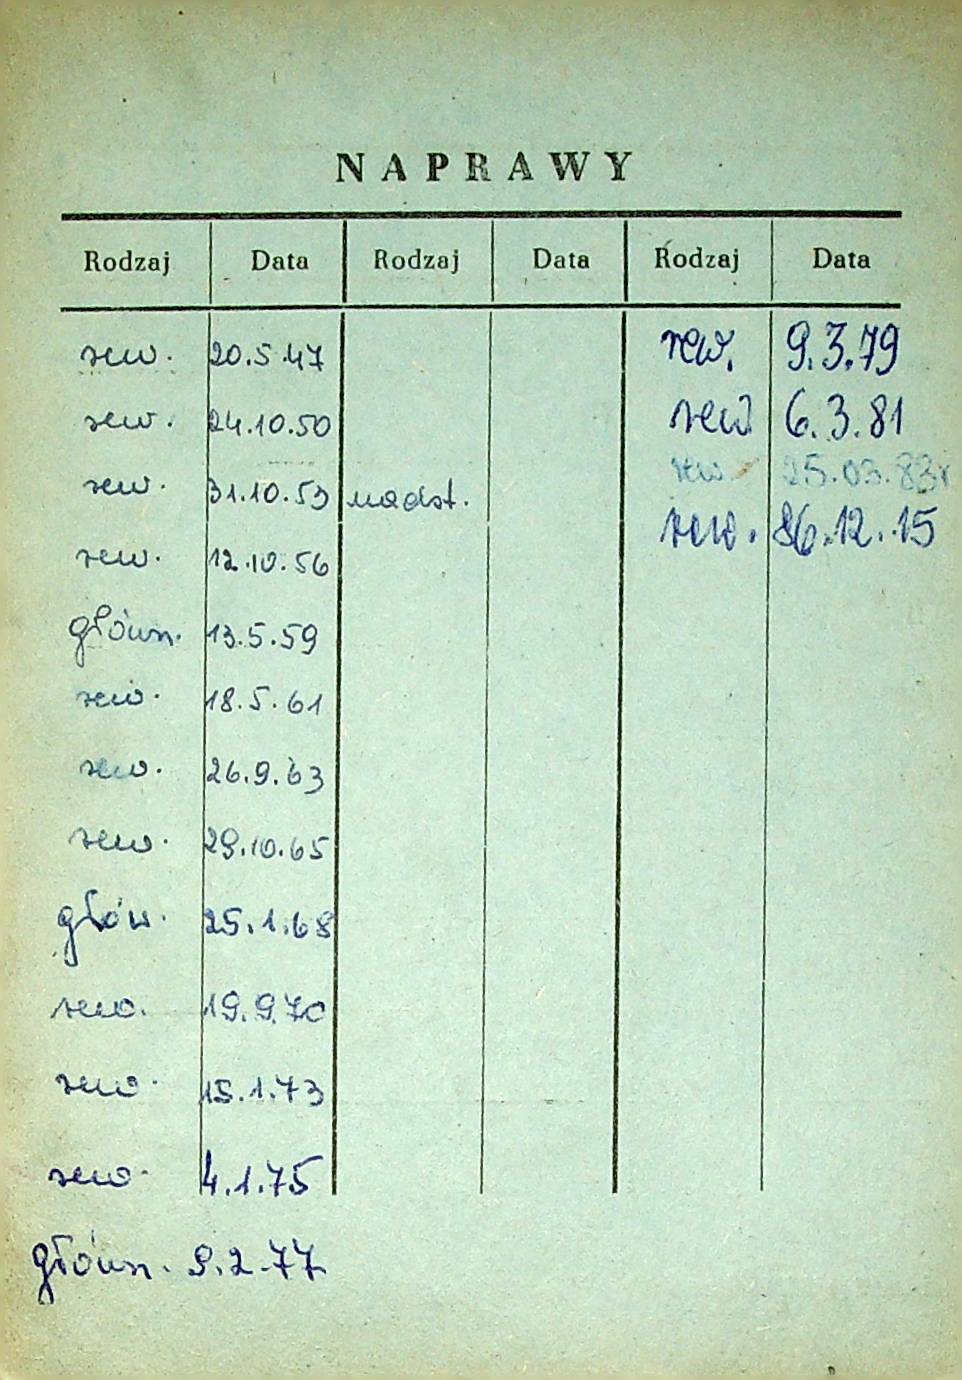 NAPRAWY
Rodzaj Data Rodzaj Data Rodzaj Data
rew. 20.5.47 rew. 9.3.79
rew. 24.10.50 rew. 6.3.81
rew. 25.03.83r
rew. 31.10.53 nadst. rew. 86.12.15
rew. 12.10.56
główn. 13.5.59
rew. 18.5.61
rew. 26.9.63
rew. 29.10.65
głów. 25.1.68
rew. 19.9.70
rew. 15.1.73
rew. 4.1.75
główn. 9.2.77